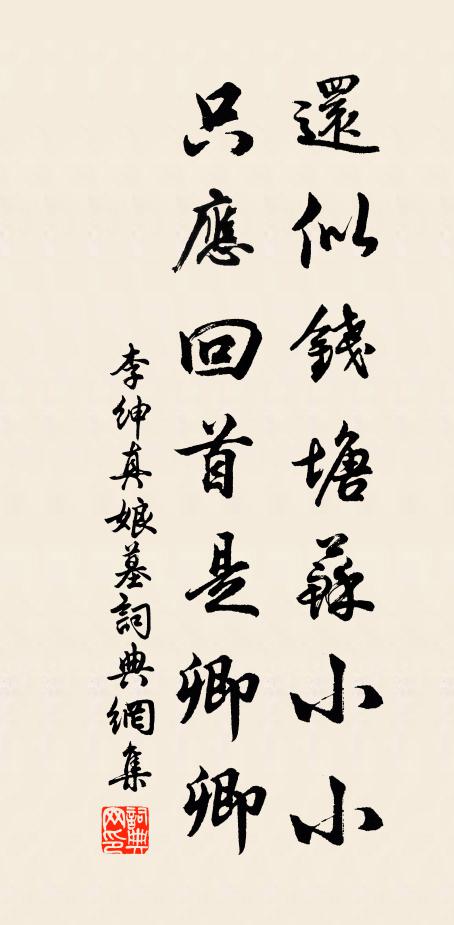 還似錢塘蘇小小
只應回首是卿卿
李紳真娘墓詞典網集
詞典网印